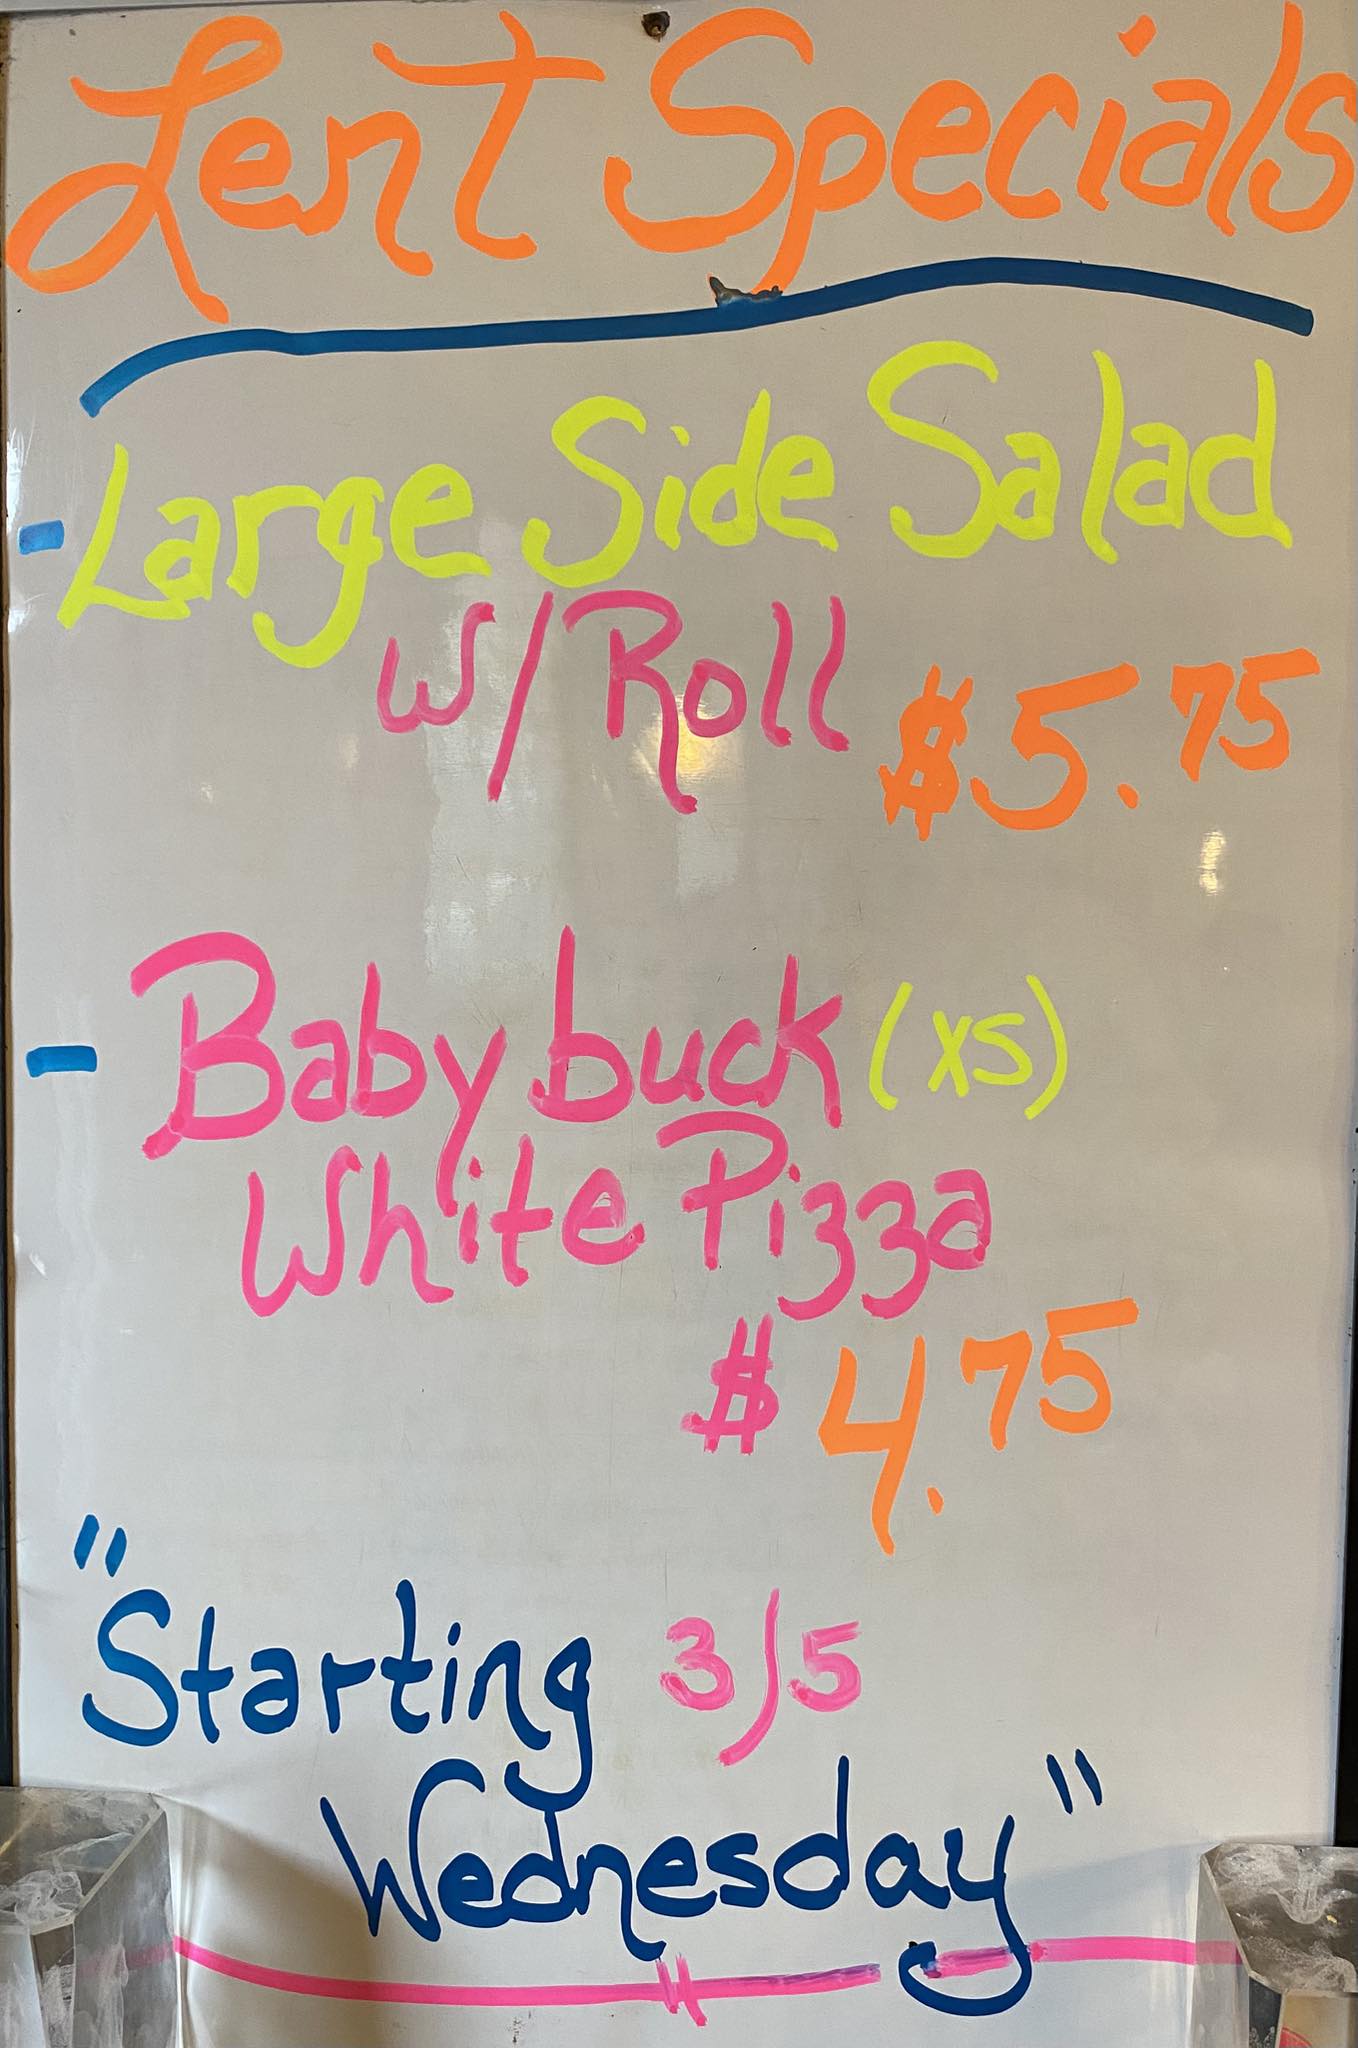 Lent Specials
- Large Side Salad
W/Roll $5.75
- Baby buck (XS)
White Pizza
$4.75
"Starting 3/5
Wednesday"